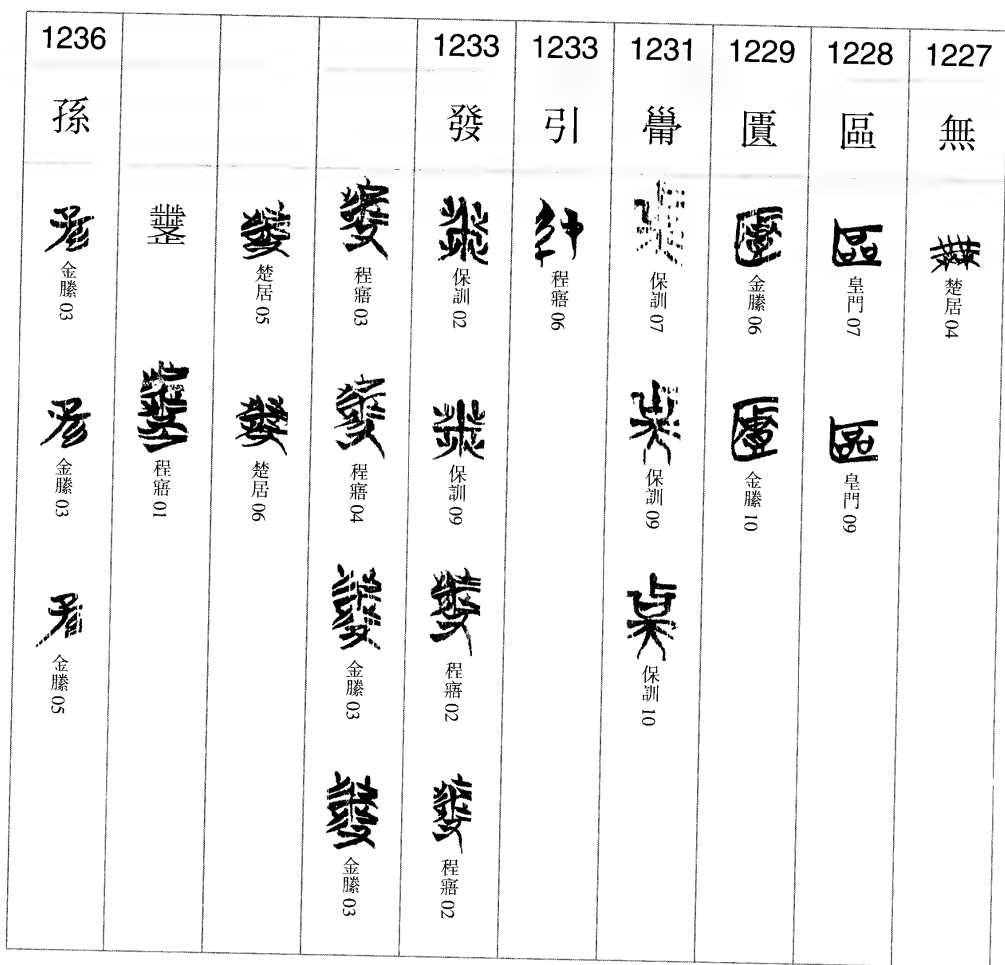 1227
無
楚居 04
1228
區
皇門 07
皇門 09
1229
匱
金縢 06
金縢 10
1231
保訓 07
保訓 09
保訓 10
1233
引
程寤 06
1233
發
保訓 02
保訓 09
程寤 02
程寤 02
程寤 03
程寤 04
金縢 03
金縢 03
楚居 05
楚居 06
程寤 01
1236
孫
金縢 03
金縢 03
金縢 05